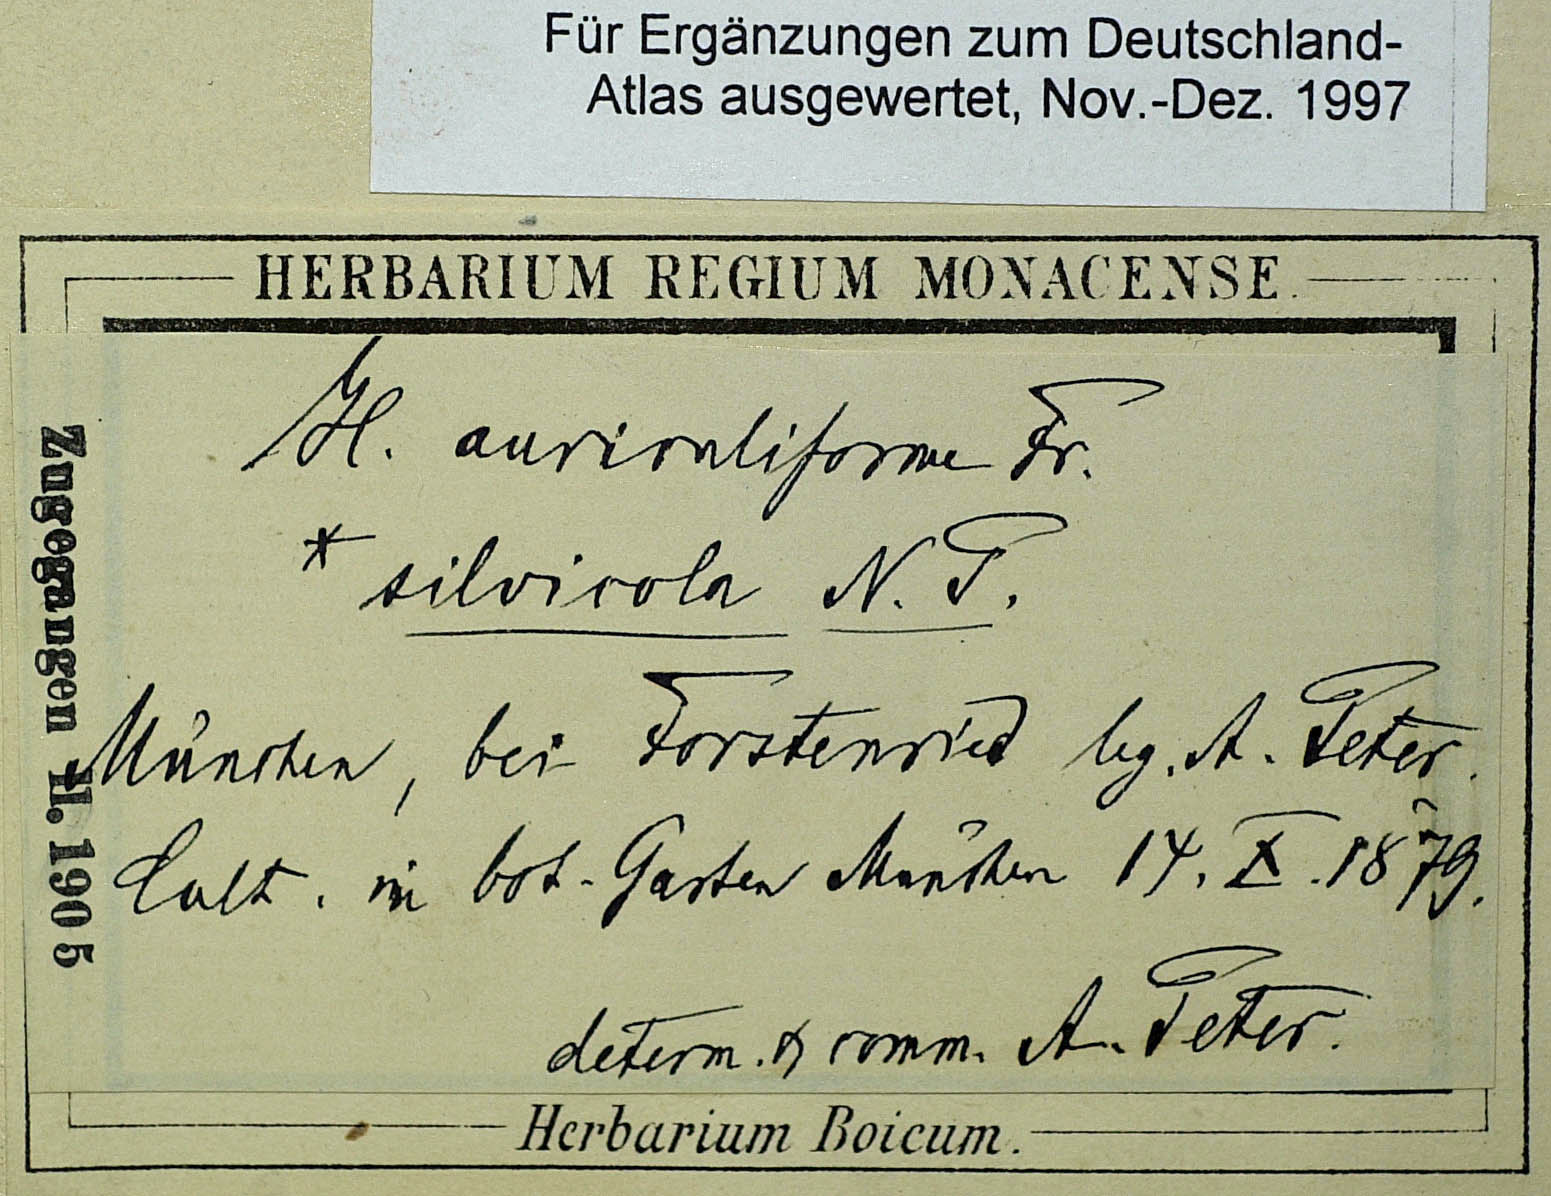 Für Ergänzungen zum Deutschland-
Atlas ausgewertet, Nov.-Dez. 1997
HERBARIUM REGIUM MONACENSE.
H. auriculiforme Fr.
* silvicola N. P.
München, bei Forstenried leg. A. Peter.
Cult. in bot. Garten München 14. X. 1879.
determ. & comm. A. Peter.
Zugegangen H. 1905
Herbarium Boicum.